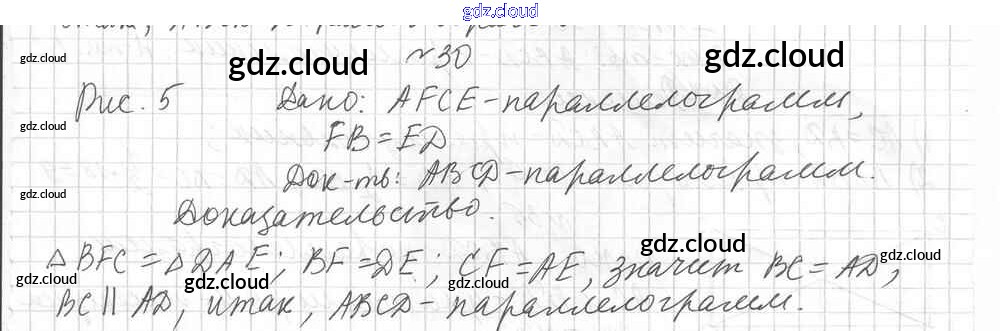 gdz.cloud
№30
Рис. 5 Дано: AFCE-параллелограмм,
FB=ED
Док-ть: ABCD-параллелограмм.
Доказательство.
△BFC=△DAE; BF=DE; CF=AE, значит BC=AD,
BC || AD, итак, ABCD-параллелограмм.
gdz.cloud
gdz.cloud
gdz.cloud
gdz.cloud
gdz.cloud
gdz.cloud
gdz.cloud
gdz.cloud
gdz.cloud
gdz.cloud
gdz.cloud